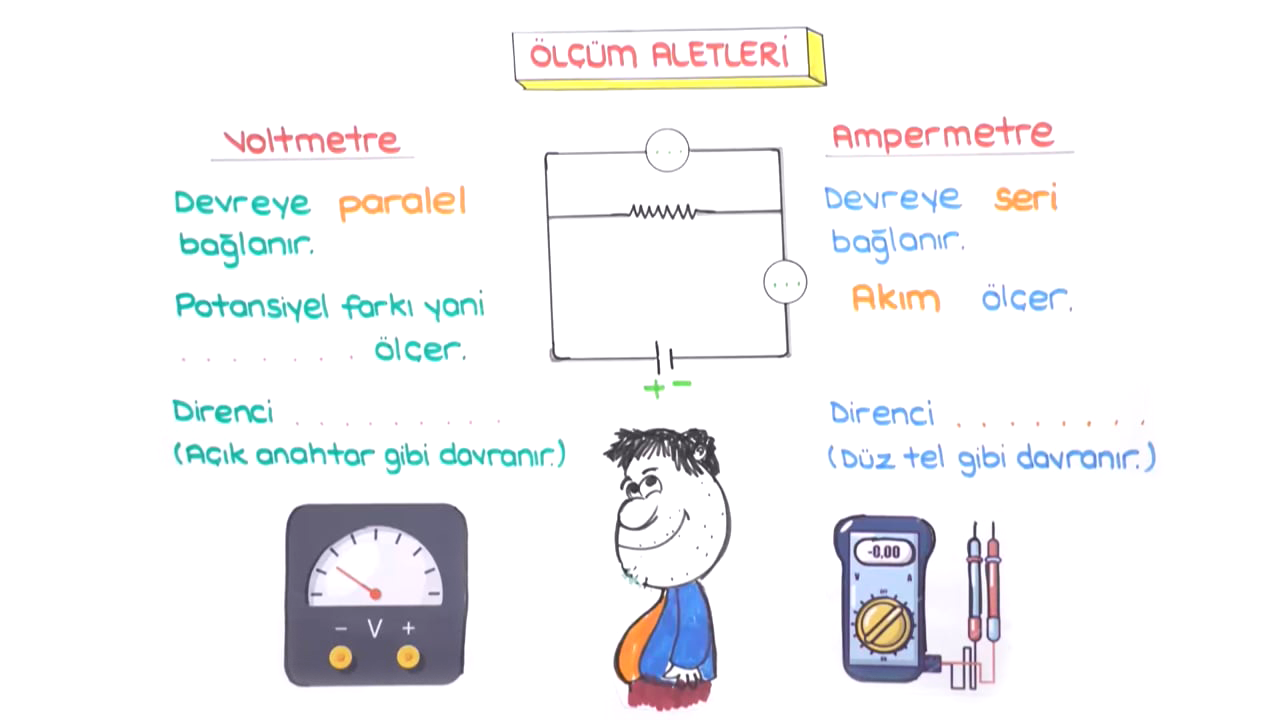 ÖLÇÜM ALETLERİ
Voltmetre
Devreye paralel
bağlanır.
Potansiyel farkı yani
. . . . . . . ölçer.
Direnci . . . . . . . .
(Açık anahtar gibi davranır.)
- V +
...
...
+ -
Ampermetre
Devreye seri
bağlanır.
Akım ölçer.
Direnci . . . . . . . .
(Düz tel gibi davranır.)
-0,00
V A